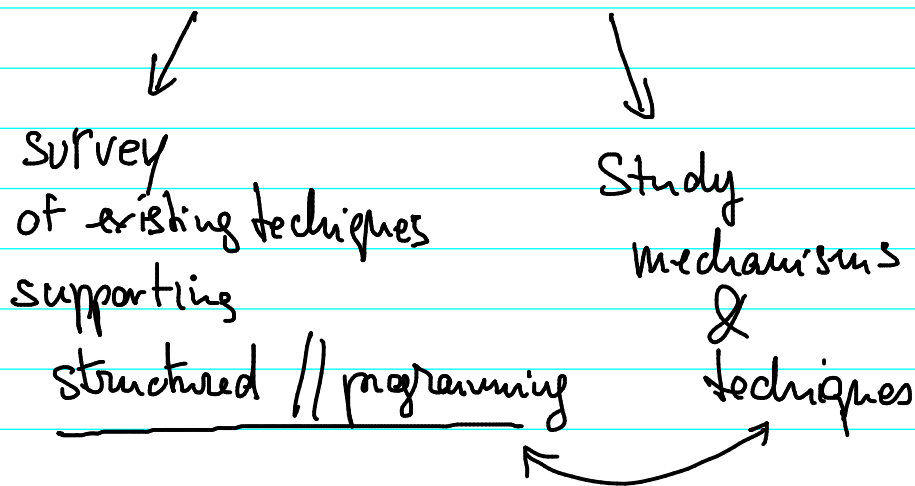 survey
of existing techiques
supporting
structured // programming
Study
mechanisms
&
techiques